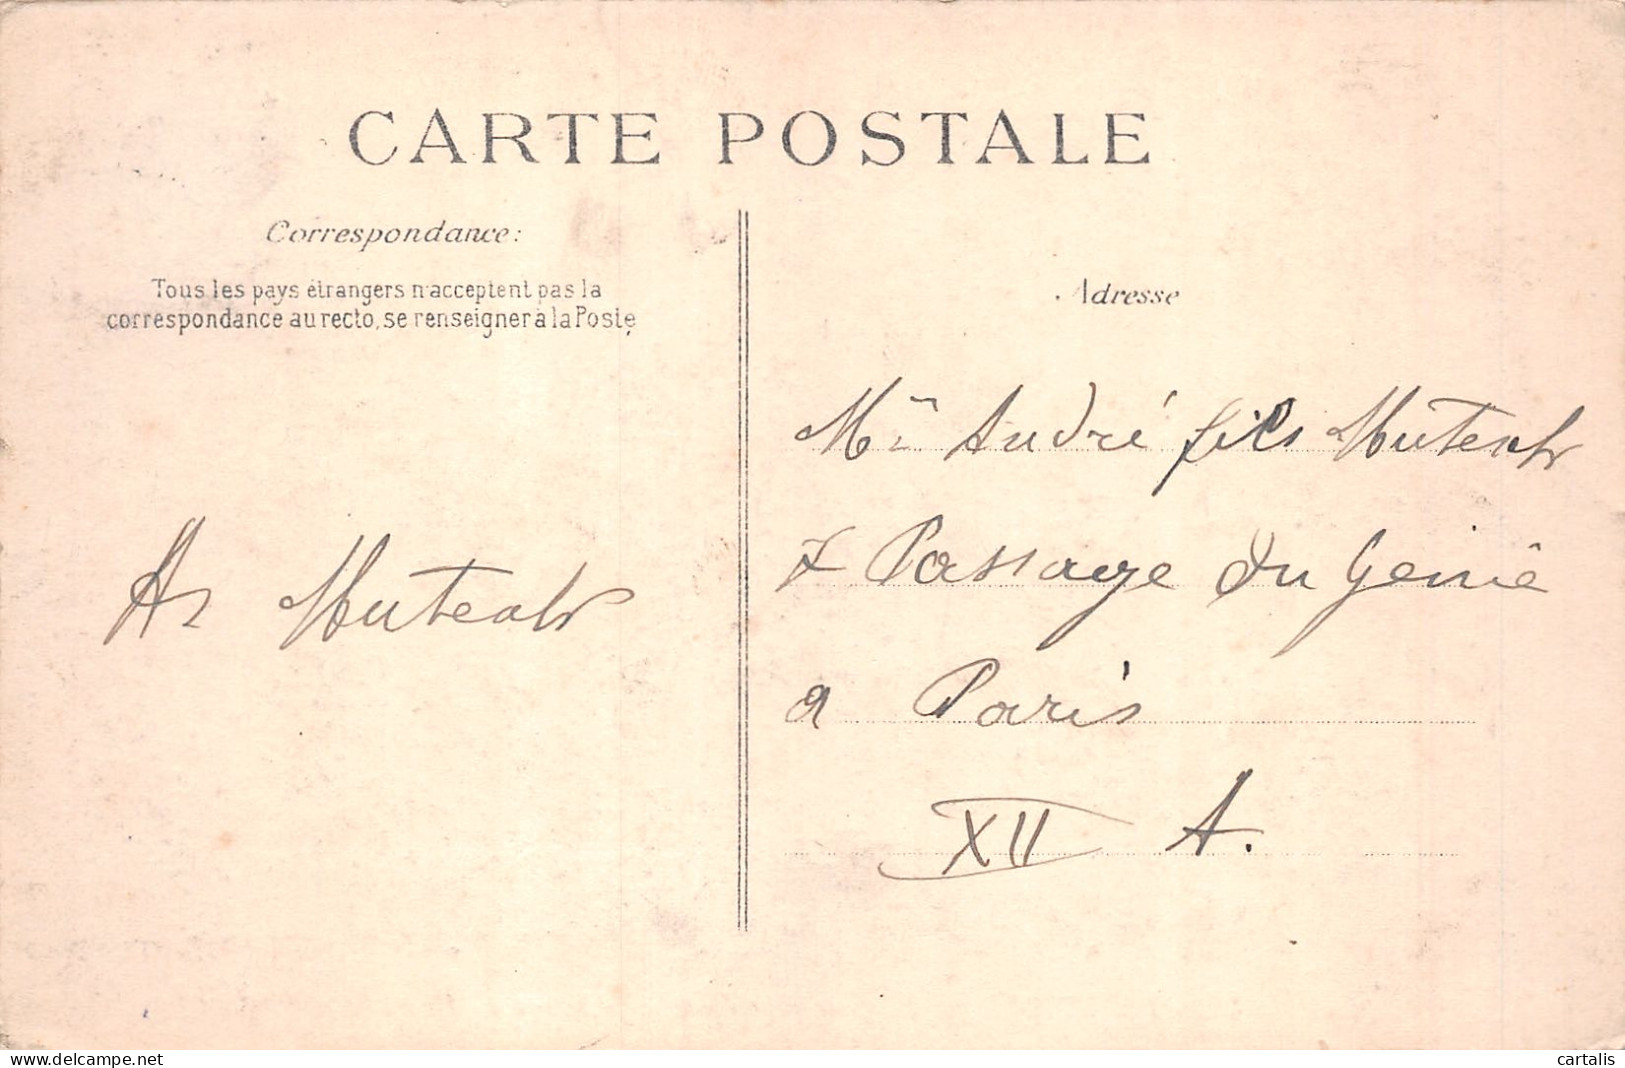 CARTE POSTALE
Correspondance:
Tous les pays étrangers n'acceptent pas la
correspondance au recto, se renseigner à la Poste
Adresse
Mr André fils
7 Passage du Génie
a Paris
XII A.
www.delcampe.net
cartalis